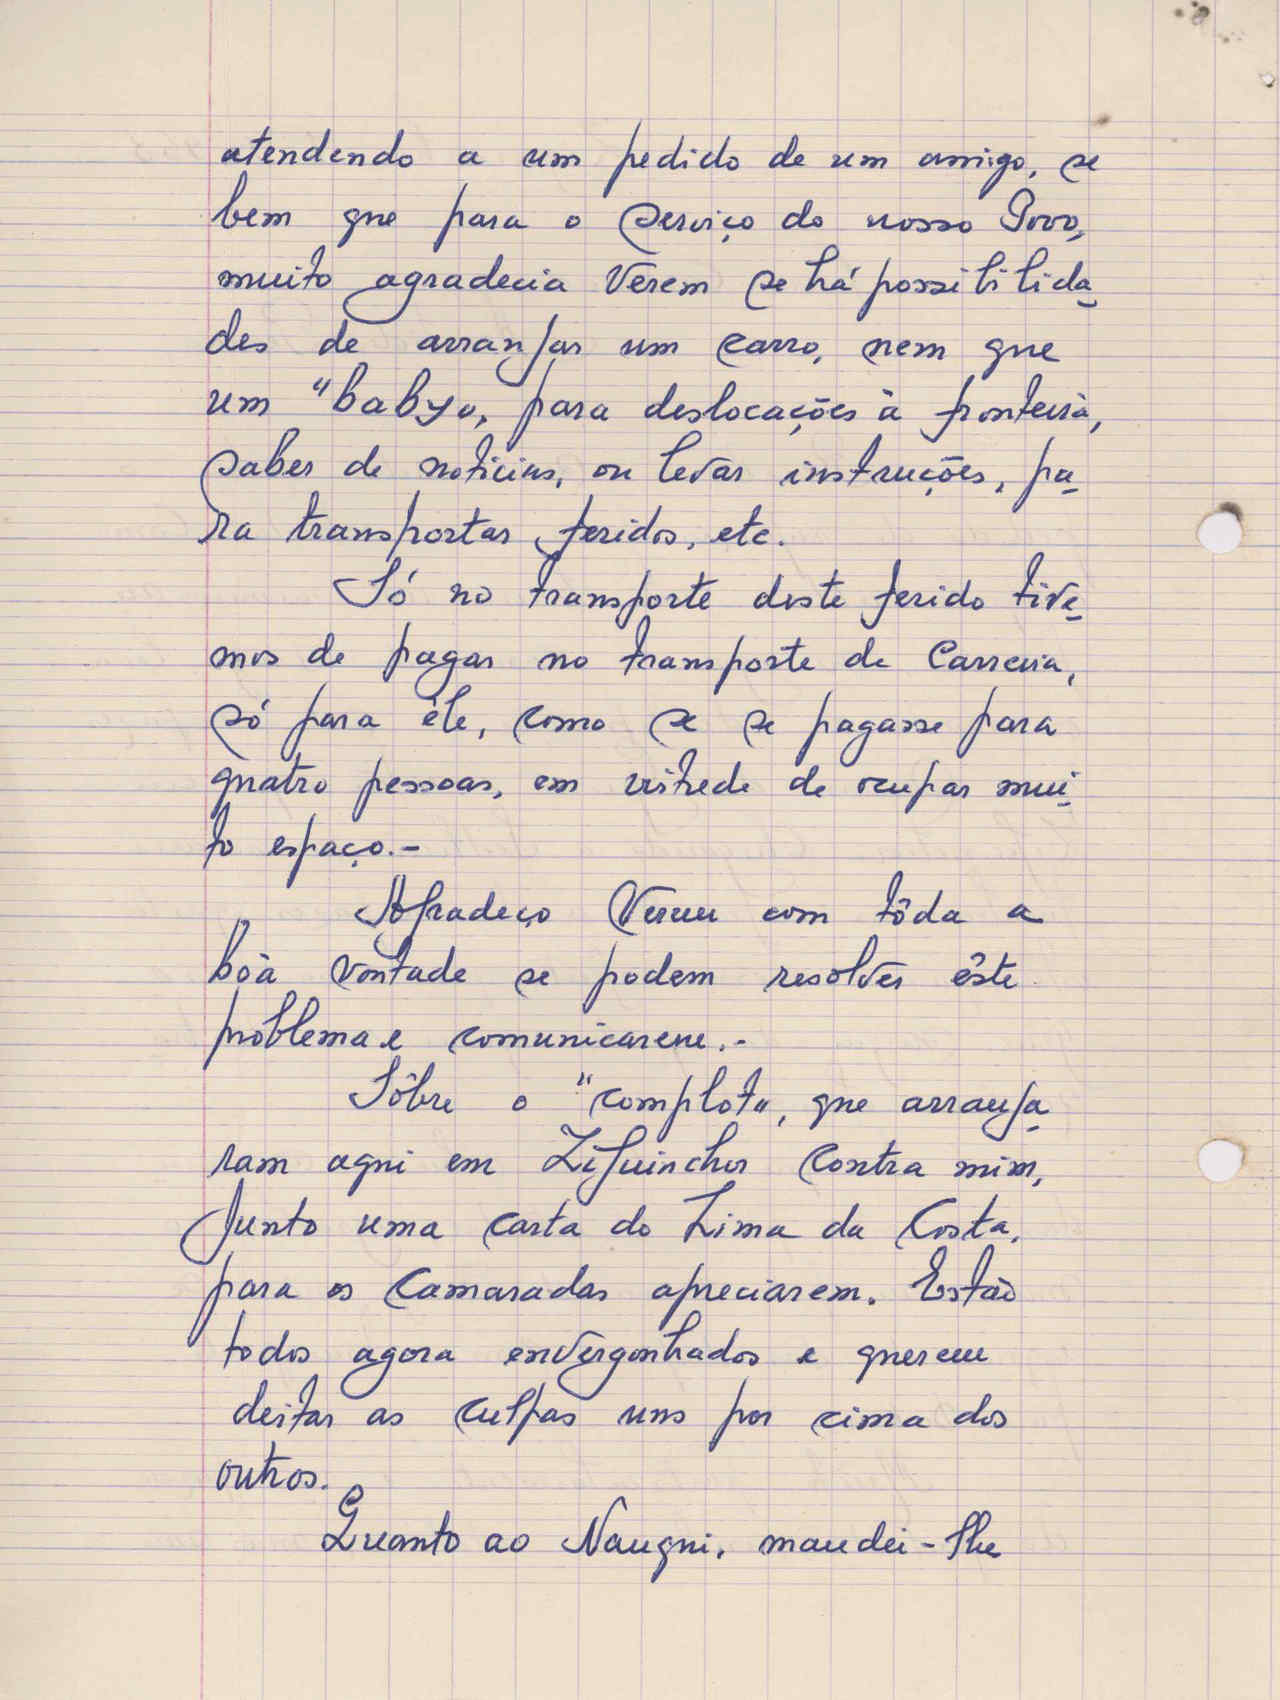 atendendo a um pedido de um amigo, se
bem que para o serviço do nosso Povo,
muito agradecia Verem se há possibilida-
des de arranjar um carro, nem que
um "baby", para deslocações à fronteira,
saber de noticias, ou levar instruções, pa-
ra transportar feridos, etc.
Só no transporte deste ferido tive-
mos de pagar no transporte da Carreira,
só para êle, como se se pagasse para
quatro pessoas, em virtude de ocupar mui-
to espaço.-
Agradeço Verem com tôda a
bôa vontade se podem resolver êste
problema e comunicarem.-
Sôbre o "complot", que arranja-
ram aqui em Ziguinchor contra mim,
Junto uma carta do Lima da Costa,
para os Camaradas apreciarem. Estão
todos agora envergonhados e querem
deitar as culpas uns por cima dos
outros.
Quanto ao Naugui, mandei-lhe